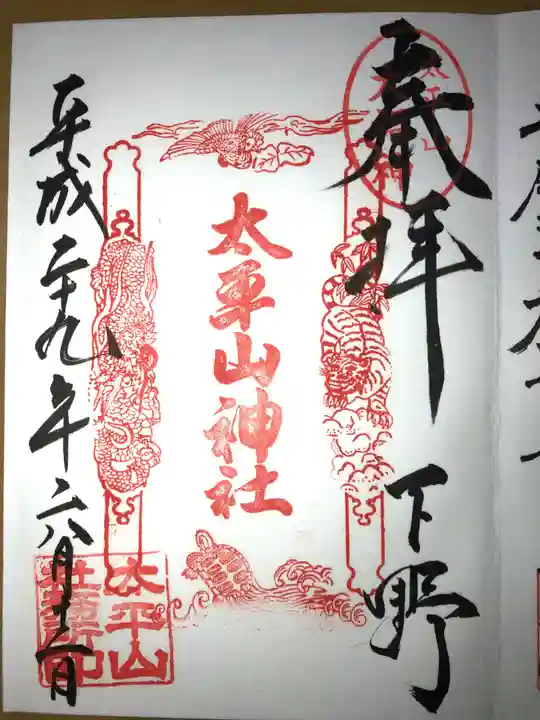 奉拝 下野
太平山神社
平成二十九年六月十二日
太平山
社務所印